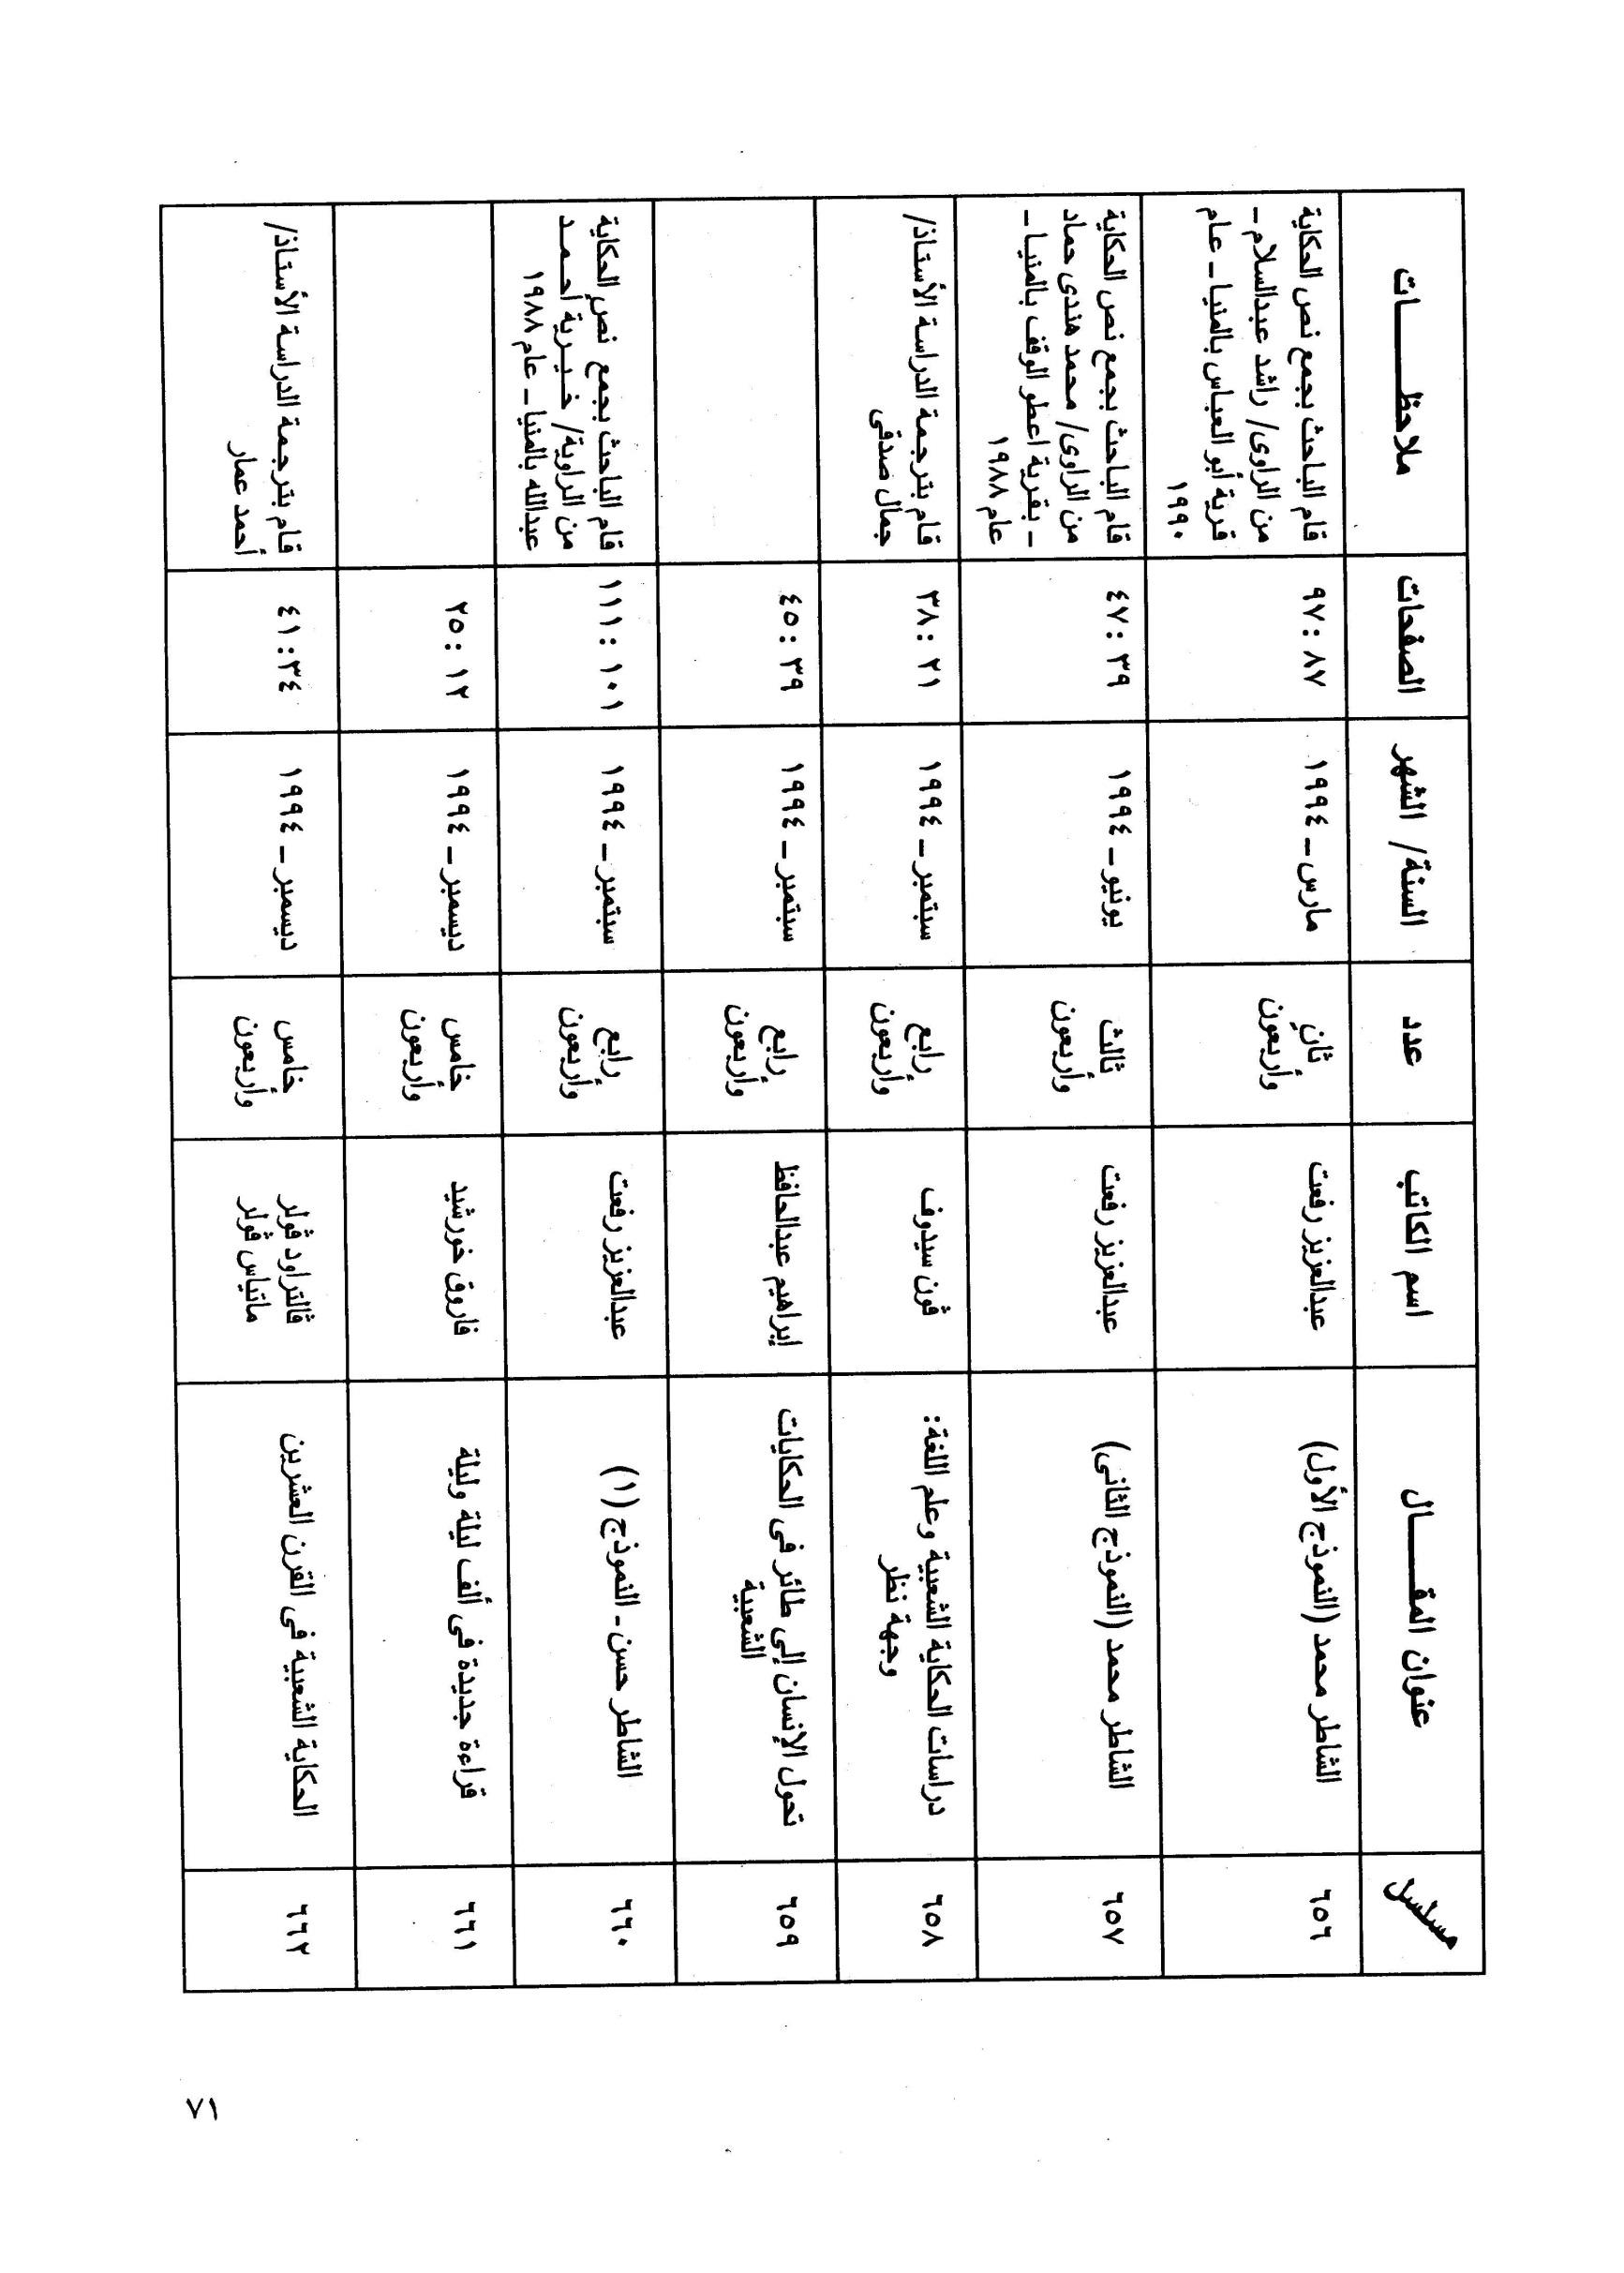 مسلسل
عنوان المقـــــال
اسم الكاتب
عدد
السنة/ الشهر
الصفحات
ملاحظـــــات
٦٥٦
الشاطر محمد (النموذج الأول)
عبدالعزيز رفعت
ثانٍ
وأربعون
مارس ـ ١٩٩٤
٨٧ : ٩٧
قام الباحث بجمع نص الحكاية
من الراوى/ راشد عبدالسلام ـ
قرية أبو العباس بالمنيا ـ عام
١٩٩٠
٦٥٧
الشاطر محمد (النموذج الثانى)
عبدالعزيز رفعت
ثالث
وأربعون
يونيو ـ ١٩٩٤
٣٩ : ٤٧
قام الباحث بجمع نص الحكاية
من الراوى/ محمد هندى حماد
ـ بقرية اعطو الوقف بالمنيا ـ
عام ١٩٨٨
٦٥٨
دراسات الحكاية الشعبية وعلم اللغة:
وجهة نظر
ڤون سيدوف
رابع
وأربعون
سبتمبر ـ ١٩٩٤
٢١ : ٣٨
قام بترجمة الدراسة الأستاذ/
جمال صدقى
٦٥٩
تحول الإنسان إلى طائر فى الحكايات
الشعبية
إبراهيم عبدالحافظ
رابع
وأربعون
سبتمبر ـ ١٩٩٤
٣٩ : ٤٥
٦٦٠
الشاطر حسن ـ النموذج (١)
عبدالعزيز رفعت
رابع
وأربعون
سبتمبر ـ ١٩٩٤
١٠١ : ١١١
قام الباحث بجمع نص الحكاية
من الراوية/ خيرية أحمد
عبدالله بالمنيا ـ عام ١٩٨٨
٦٦١
قراءة جديدة فى ألف ليلة وليلة
فاروق خورشيد
خامس
وأربعون
ديسمبر ـ ١٩٩٤
١٢ : ٢٥
٦٦٢
الحكاية الشعبية فى القرن العشرين
ڤالتراود ڤولر
ماتياس ڤولر
خامس
وأربعون
ديسمبر ـ ١٩٩٤
٣٤ : ٤١
قام بترجمة الدراسة الأستاذ/
أحمد عمار
٧١